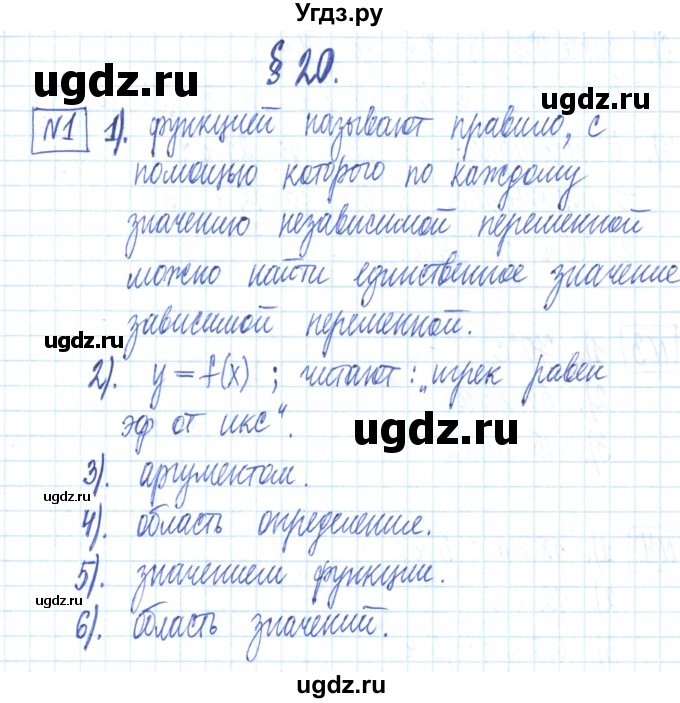 Угдз.ру
§ 20.
ugdz.ru
ugdz.ru
№1 1). функцией называют правило, с
помощью которого по каждому
значению независимой переменной
можно найти единственное значение
ugdz.ru
зависимой переменной.
2). y = f(x) ; читают: „игрек равен
эф от икс“.
ugdz.ru
3). аргументом.
ugdz.ru
4). область определения.
5). значением функции.
ugdz.ru
6). область значений.
ugdz.ru